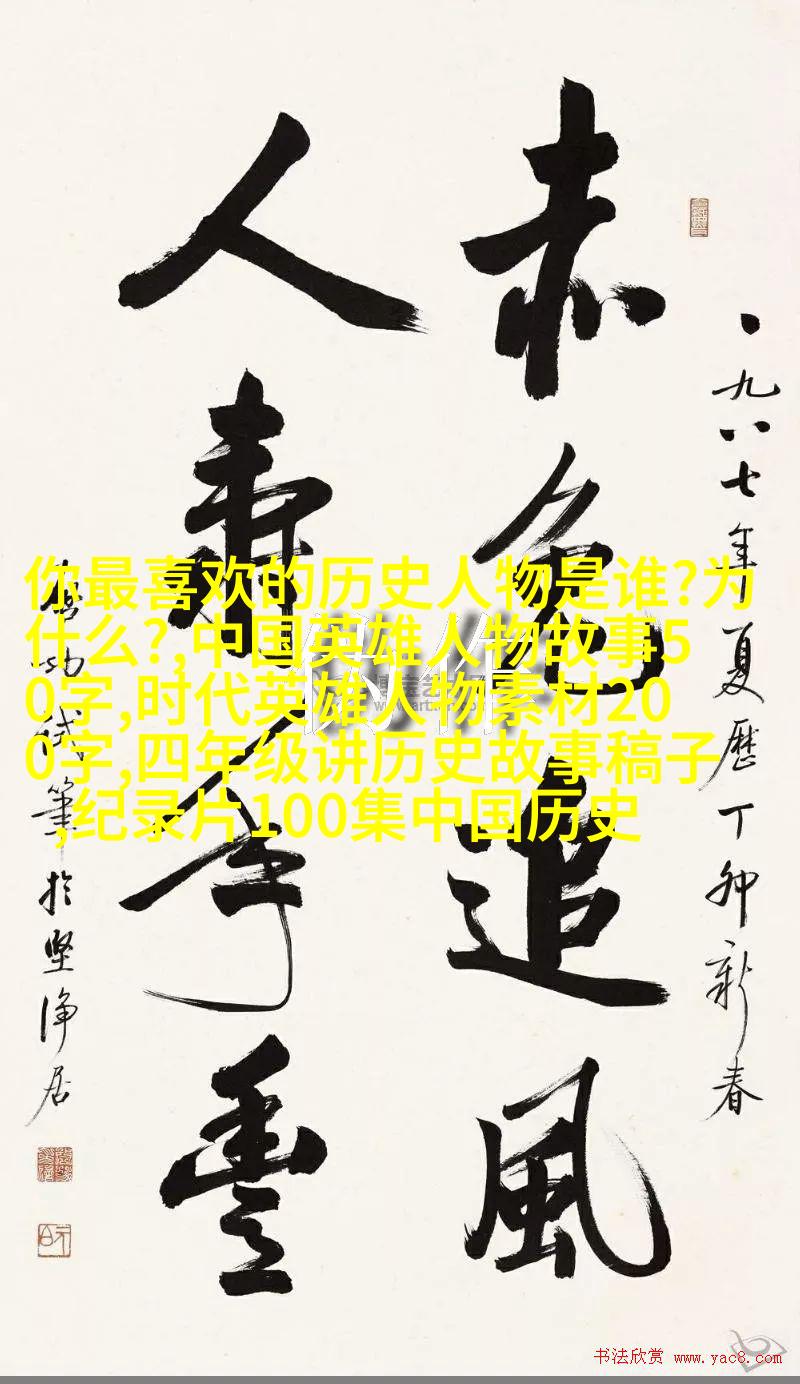 一九八七年夏歷丁卯新春
赤兔追風
人壽年豐
啓功試筆於堅淨居
你最喜欢的历史人物是谁?为
什么?,中国英雄人物故事5
0字,时代英雄人物素材20
0字,四年级讲历史故事稿子
,纪录片100集中国历史
书法欣赏 www.yac8.com